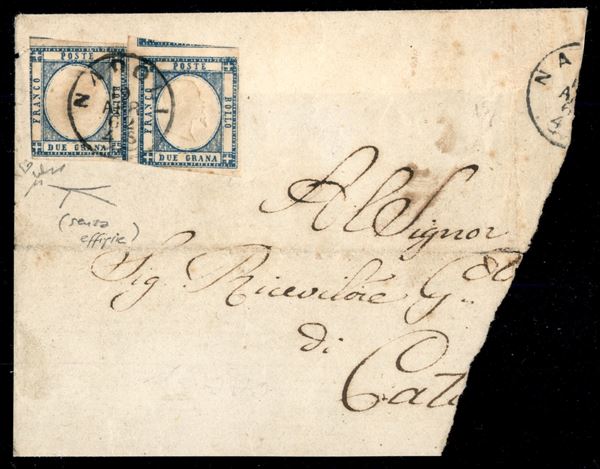 POSTE
FRANCO
DUE GRANA
POSTE
FRANCO
BOLLO
DUE GRANA
NAPOLI
APR
NA
(senza
effigie)
Al Signor
Sig. Ricevitore G.
di
Cat